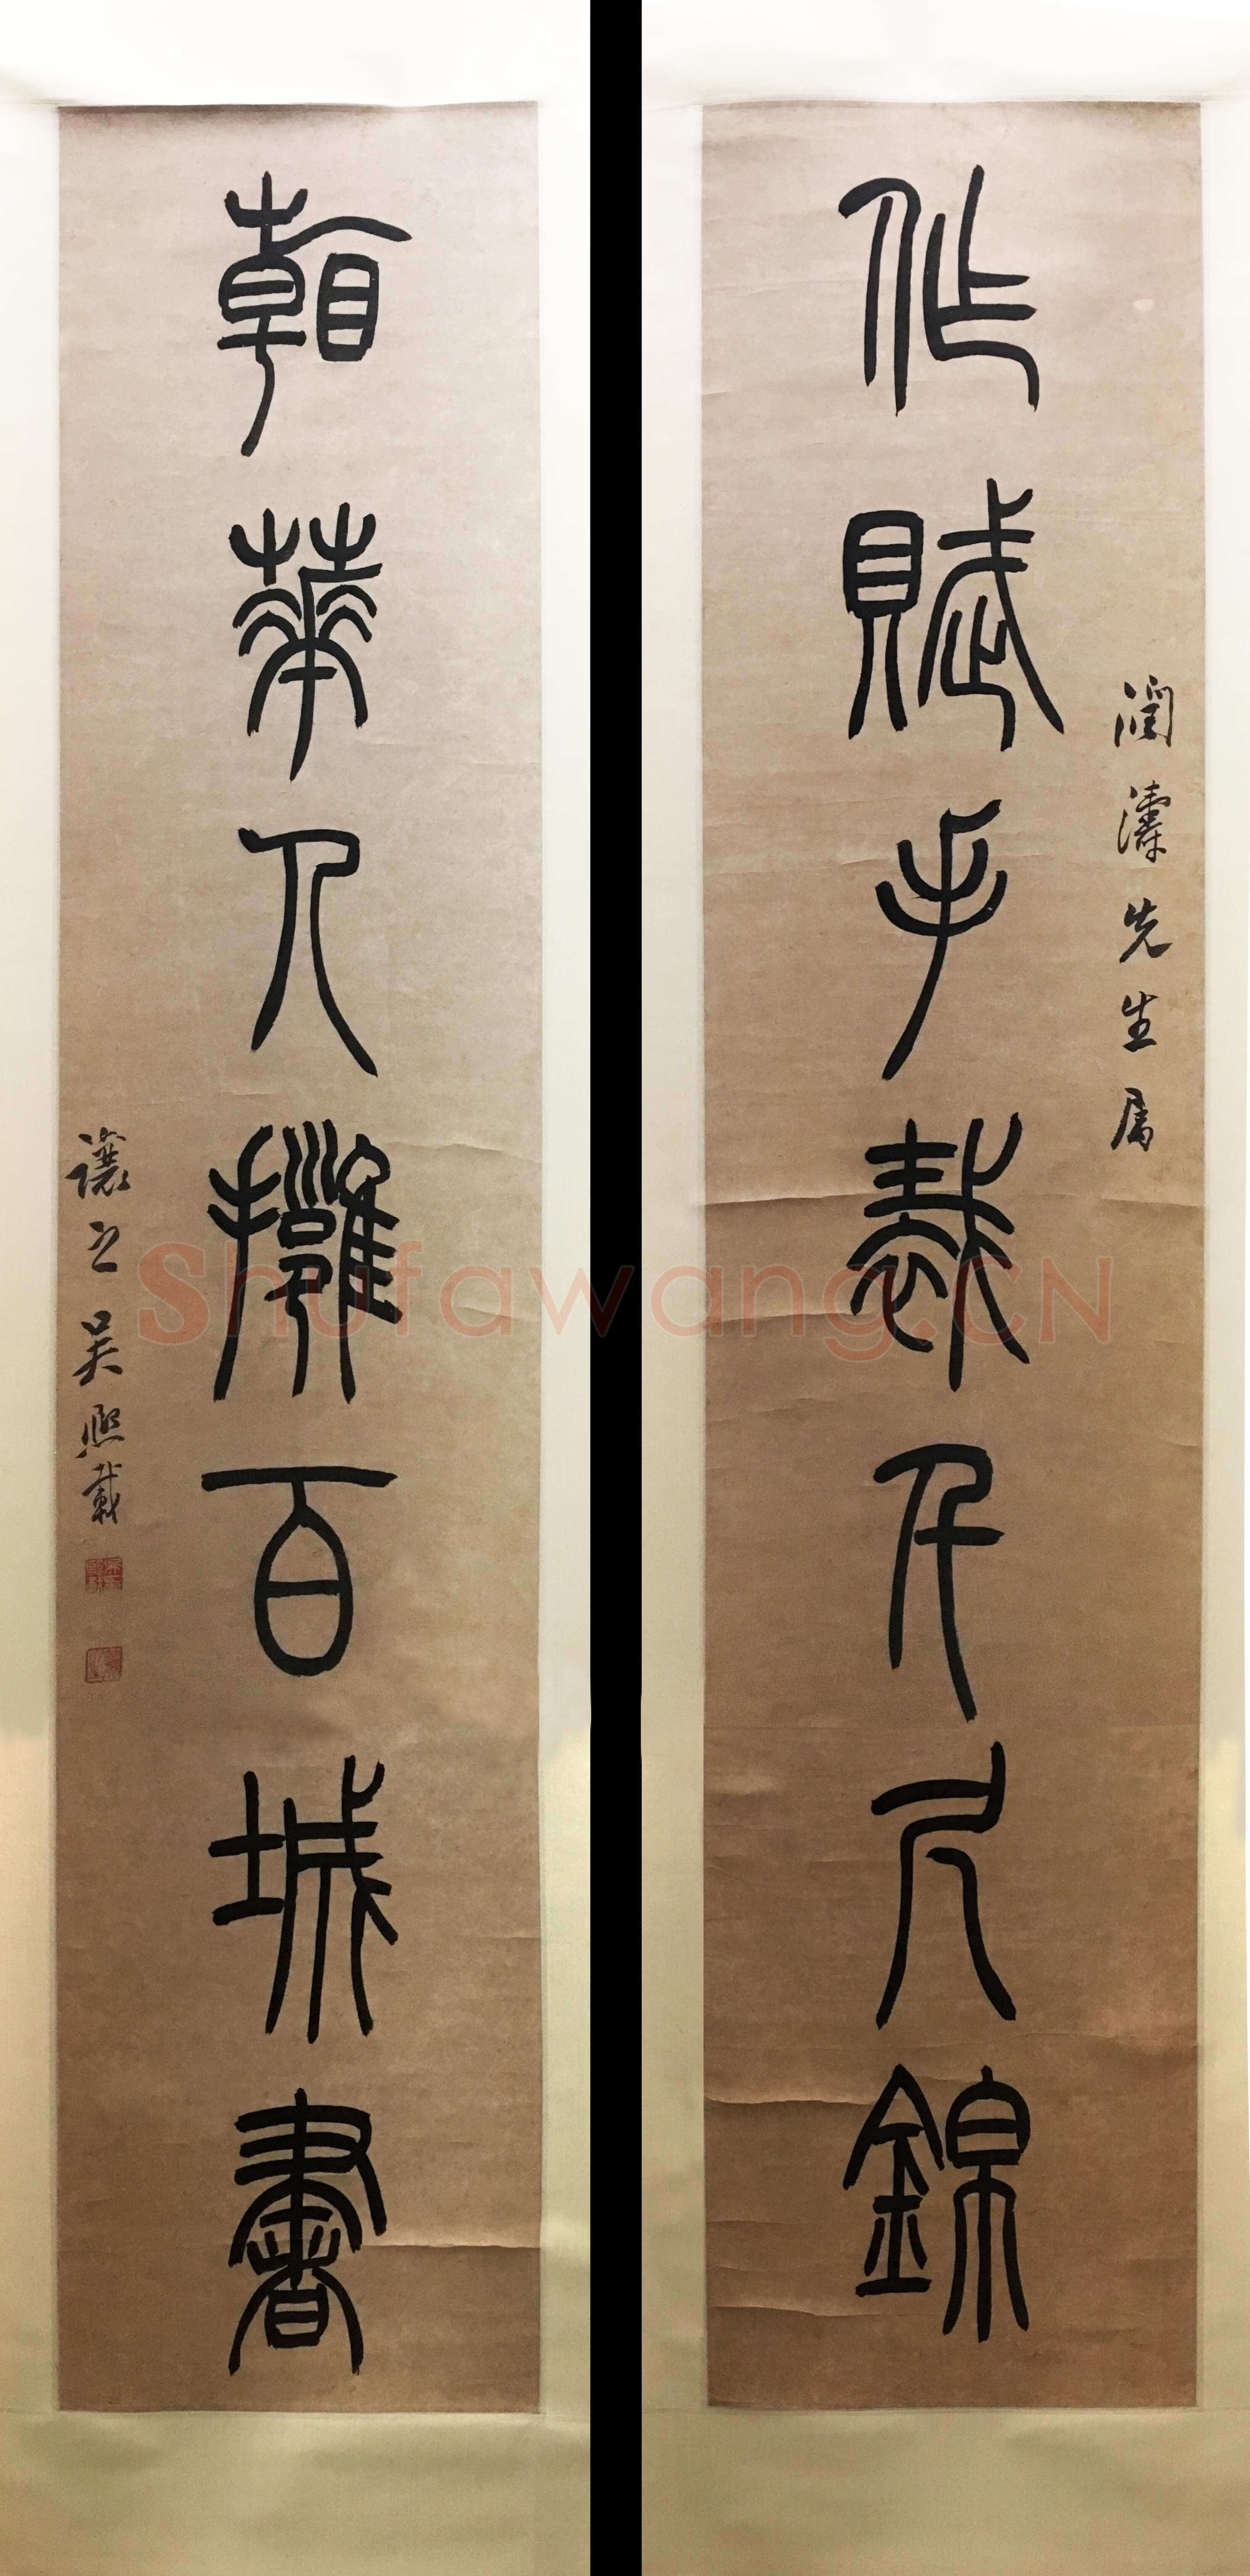 作賦手裁千尺錦
潤濤先生属
朝華人擁百城書
讓之吳熙載
Shufawang.CN